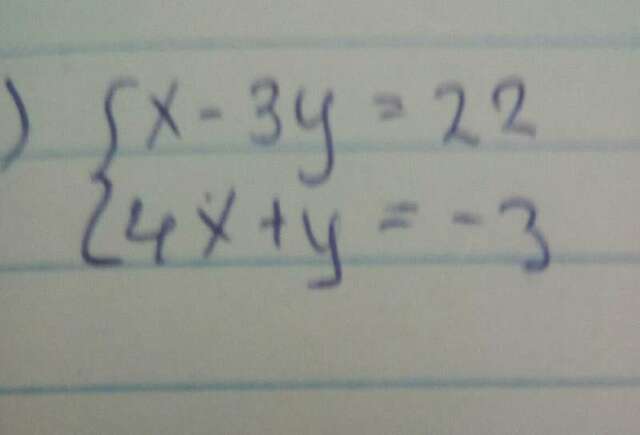 ) { x - 3y = 22
4x + y = - 3